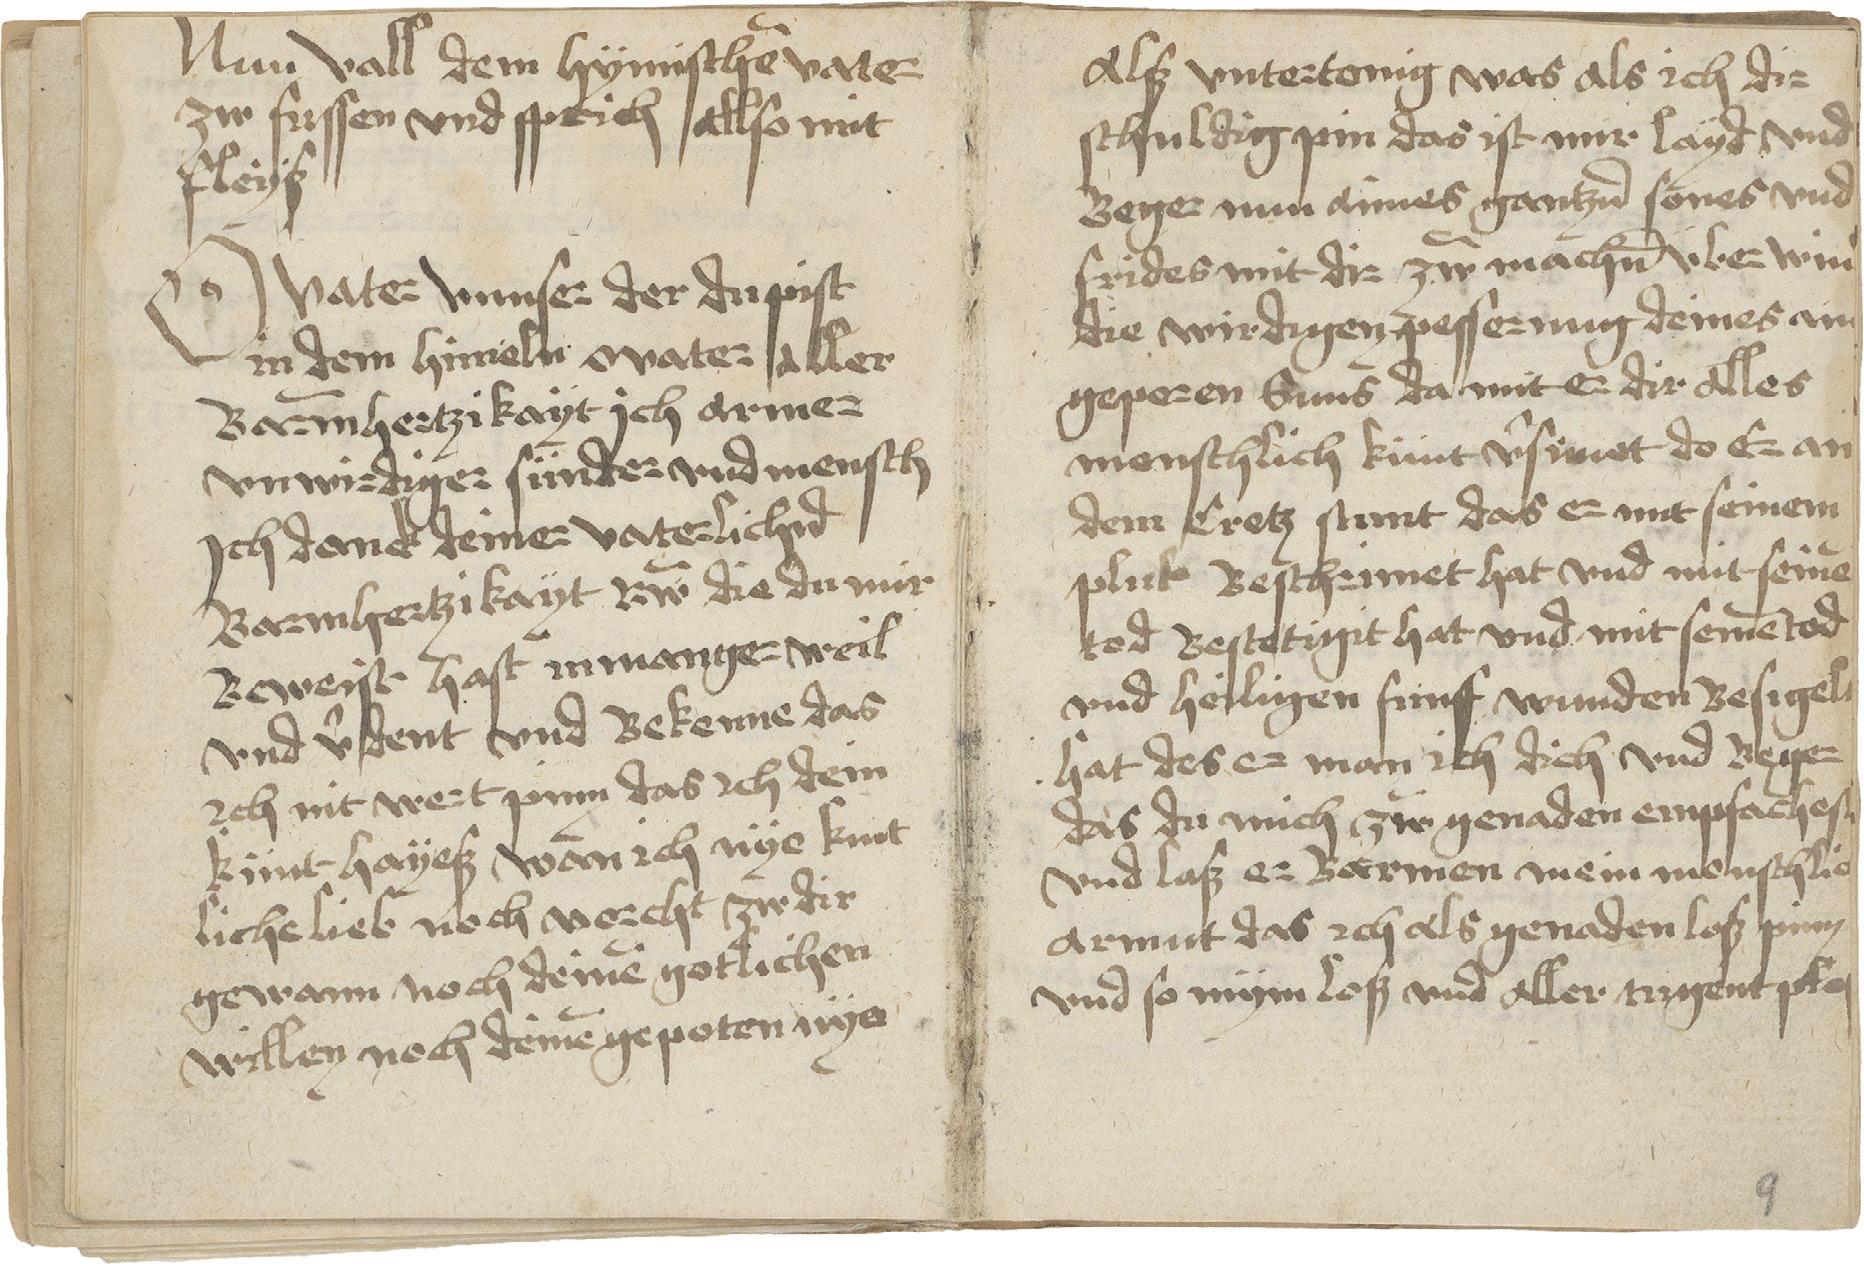 Nun vall dem hÿmischē vater
zw fussen vnd sprich allso mit
fleÿß
O vater vnnser der du pist
in dem himeln o vater aller
Barmhertzikaÿt ich armer
vnwirdiger sünder vnd mensch
Ich danck deiner vaterlichn̄
Barmhertzikaÿt die du mir
Beweist hast in manger weil
vnd v̄dent vnd Bekenne das
ich nit wert pinn das ich dein
kint haÿeß wan ich nÿe kint
liche lieb noch vorcht zw dir
gewann noch deinē gotlichen
willen noch deinē gepoten nÿe
Alß vntertenig was als ich dir
schuldig pin das ist mir laÿd vnd
Beger nun aines gantzn̄ sones vnd
frides mit dir zw machn̄ vber
die wirdigen pesserung deines ain
geperen Suns da mit er dir alles
menschlich kunt v̄sünet do Er an
dem Cretz stunt das er mit seinem
plut Beschirmet hat vnd mit seinē
tod Bestetigit hat vnd mit seinē tod
vnd heiligen funf wunden Besigelt
hat des er man ich dich vnd Beger
das du mich zw genaden empfachest
vnd laß er Barmen mein menschlic
armut das ich als genaden loß pinn
vnd so nÿm loß vnd aller tugent
9